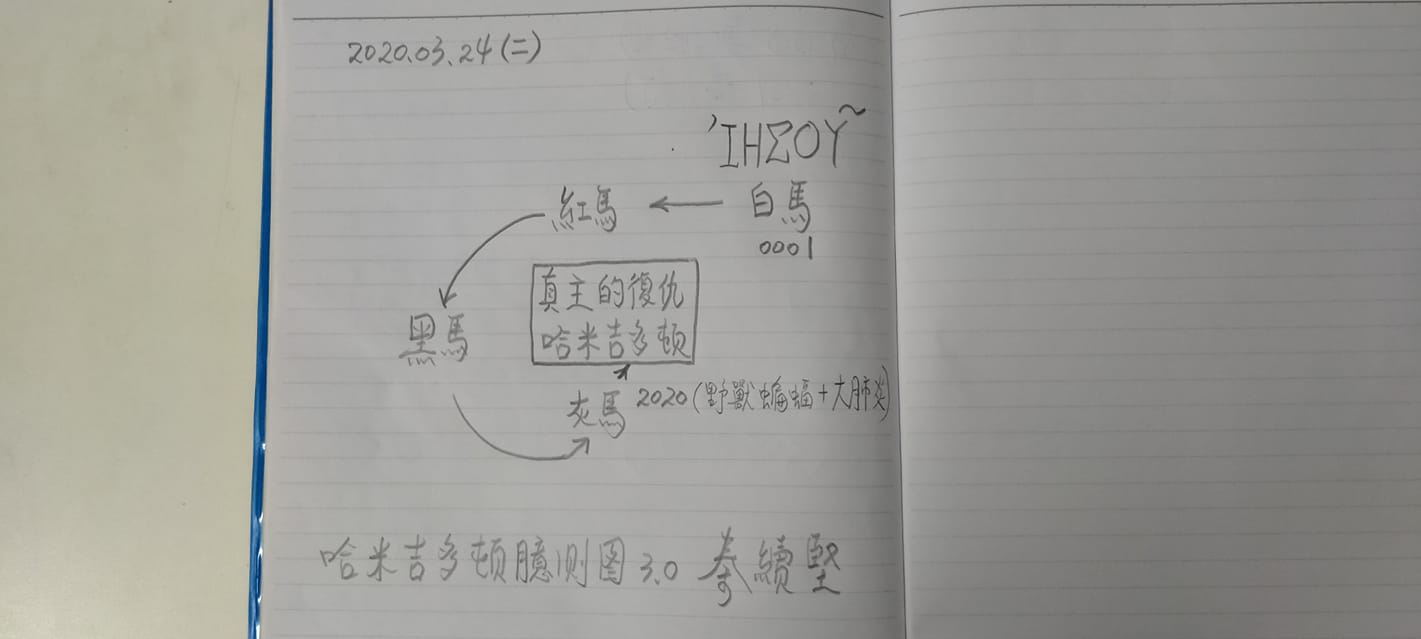 2020.03.24(二)
ἸΗΣΟΥ~
紅馬 ← 白馬
0001
真主的復仇
哈米吉多頓
黑馬
灰馬 2020(野獸蝙蝠+大肺炎)
哈米吉多頓臆测图3.0 續堅